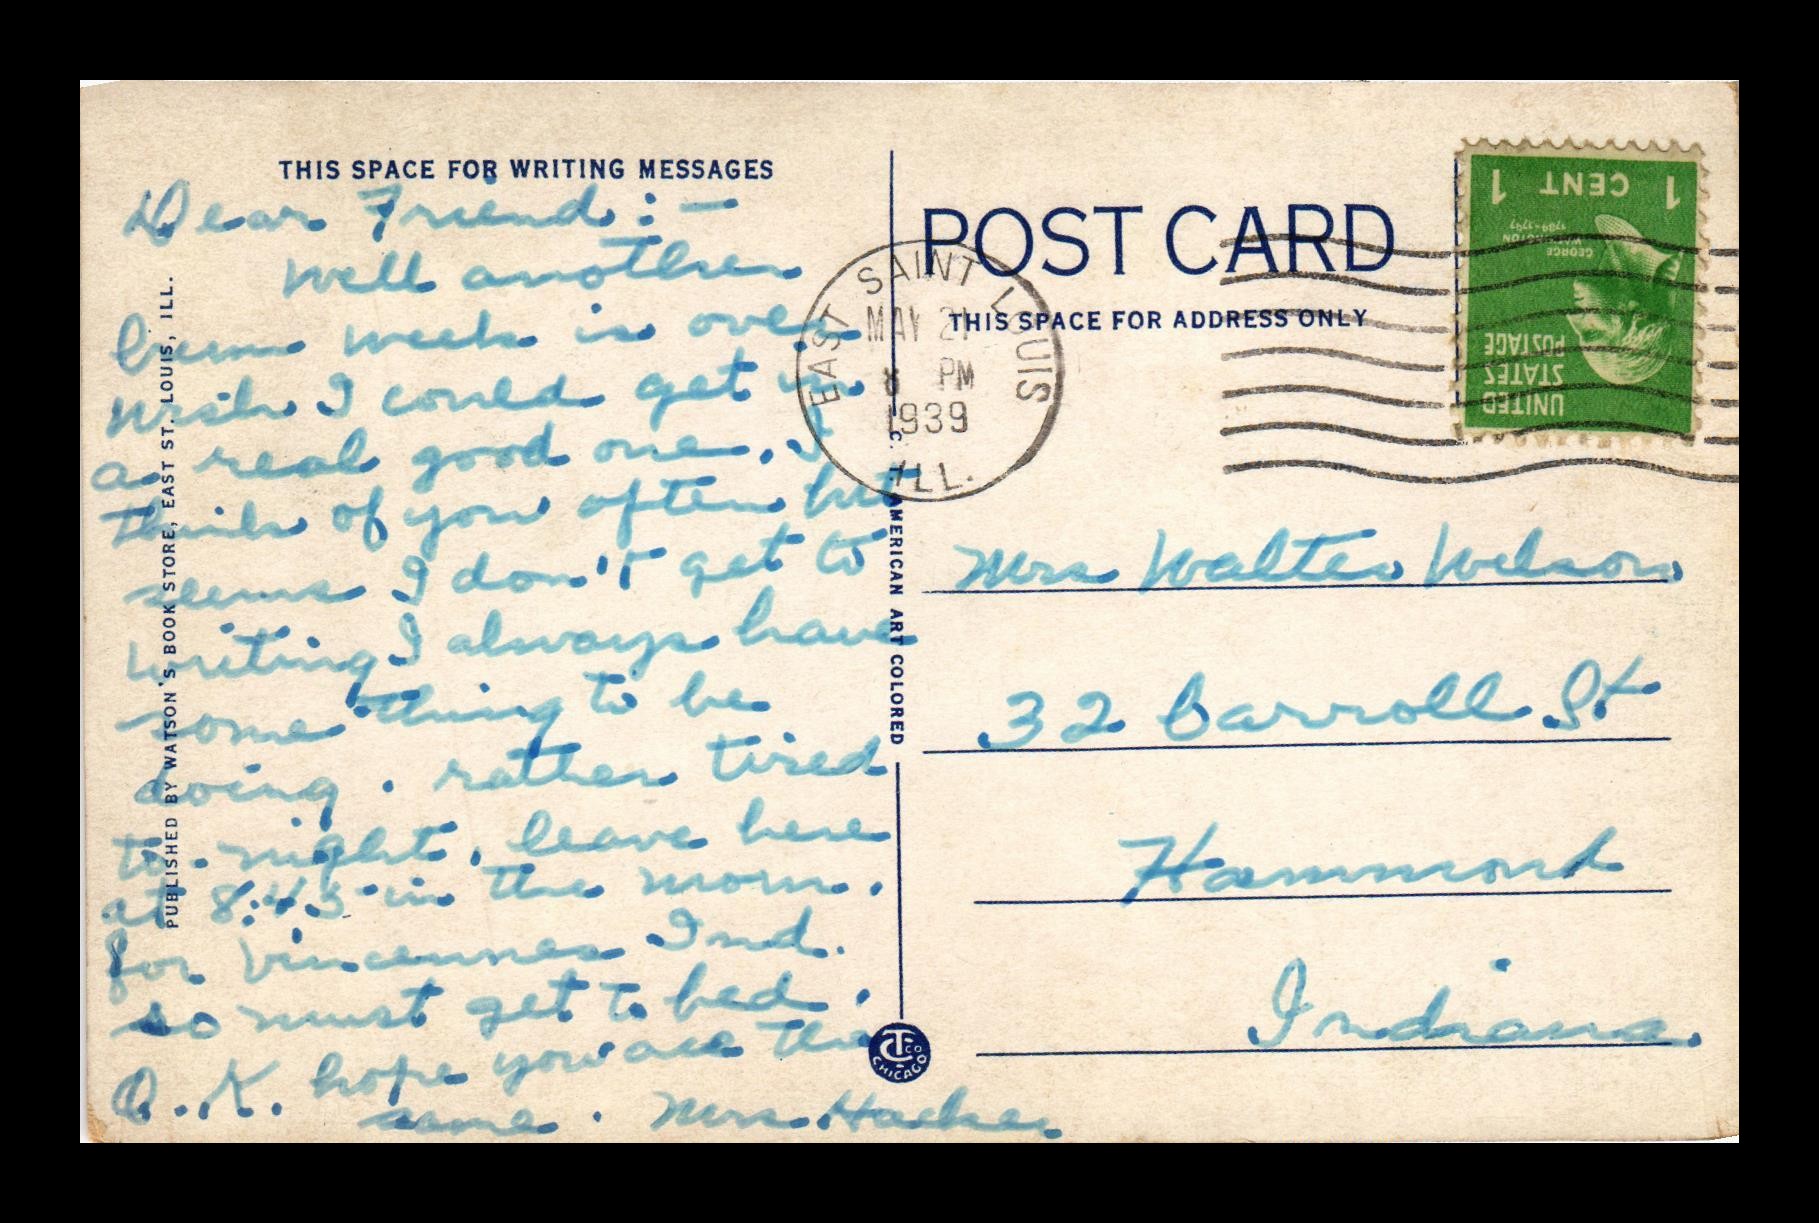 THIS SPACE FOR WRITING MESSAGES
Dear Friend : —
Well another
bum week is over
wish I could get in
a real good one. I
think of you often but
seems I don't get to
writing I always have
some thing to be
doing. rather tired
to-night, leave here
at 8:45 in the morn.
for Vincennes Ind.
so must get to bed.
O.K. hope you are the
same. Mrs
PUBLISHED BY WATSON'S BOOK STORE, EAST ST. LOUIS, ILL.
C. AMERICAN ART COLORED
CT CO
CHICAGO
POST CARD
THIS SPACE FOR ADDRESS ONLY
EAST SAINT LOUIS
MAY 21
8 PM
1939
ILL.
1 CENT 1
GEORGE
WASHINGTON
1789-1797
UNITED
STATES
POSTAGE
Mrs Walter Welson
32 Carroll St
Hammond
Indiana.